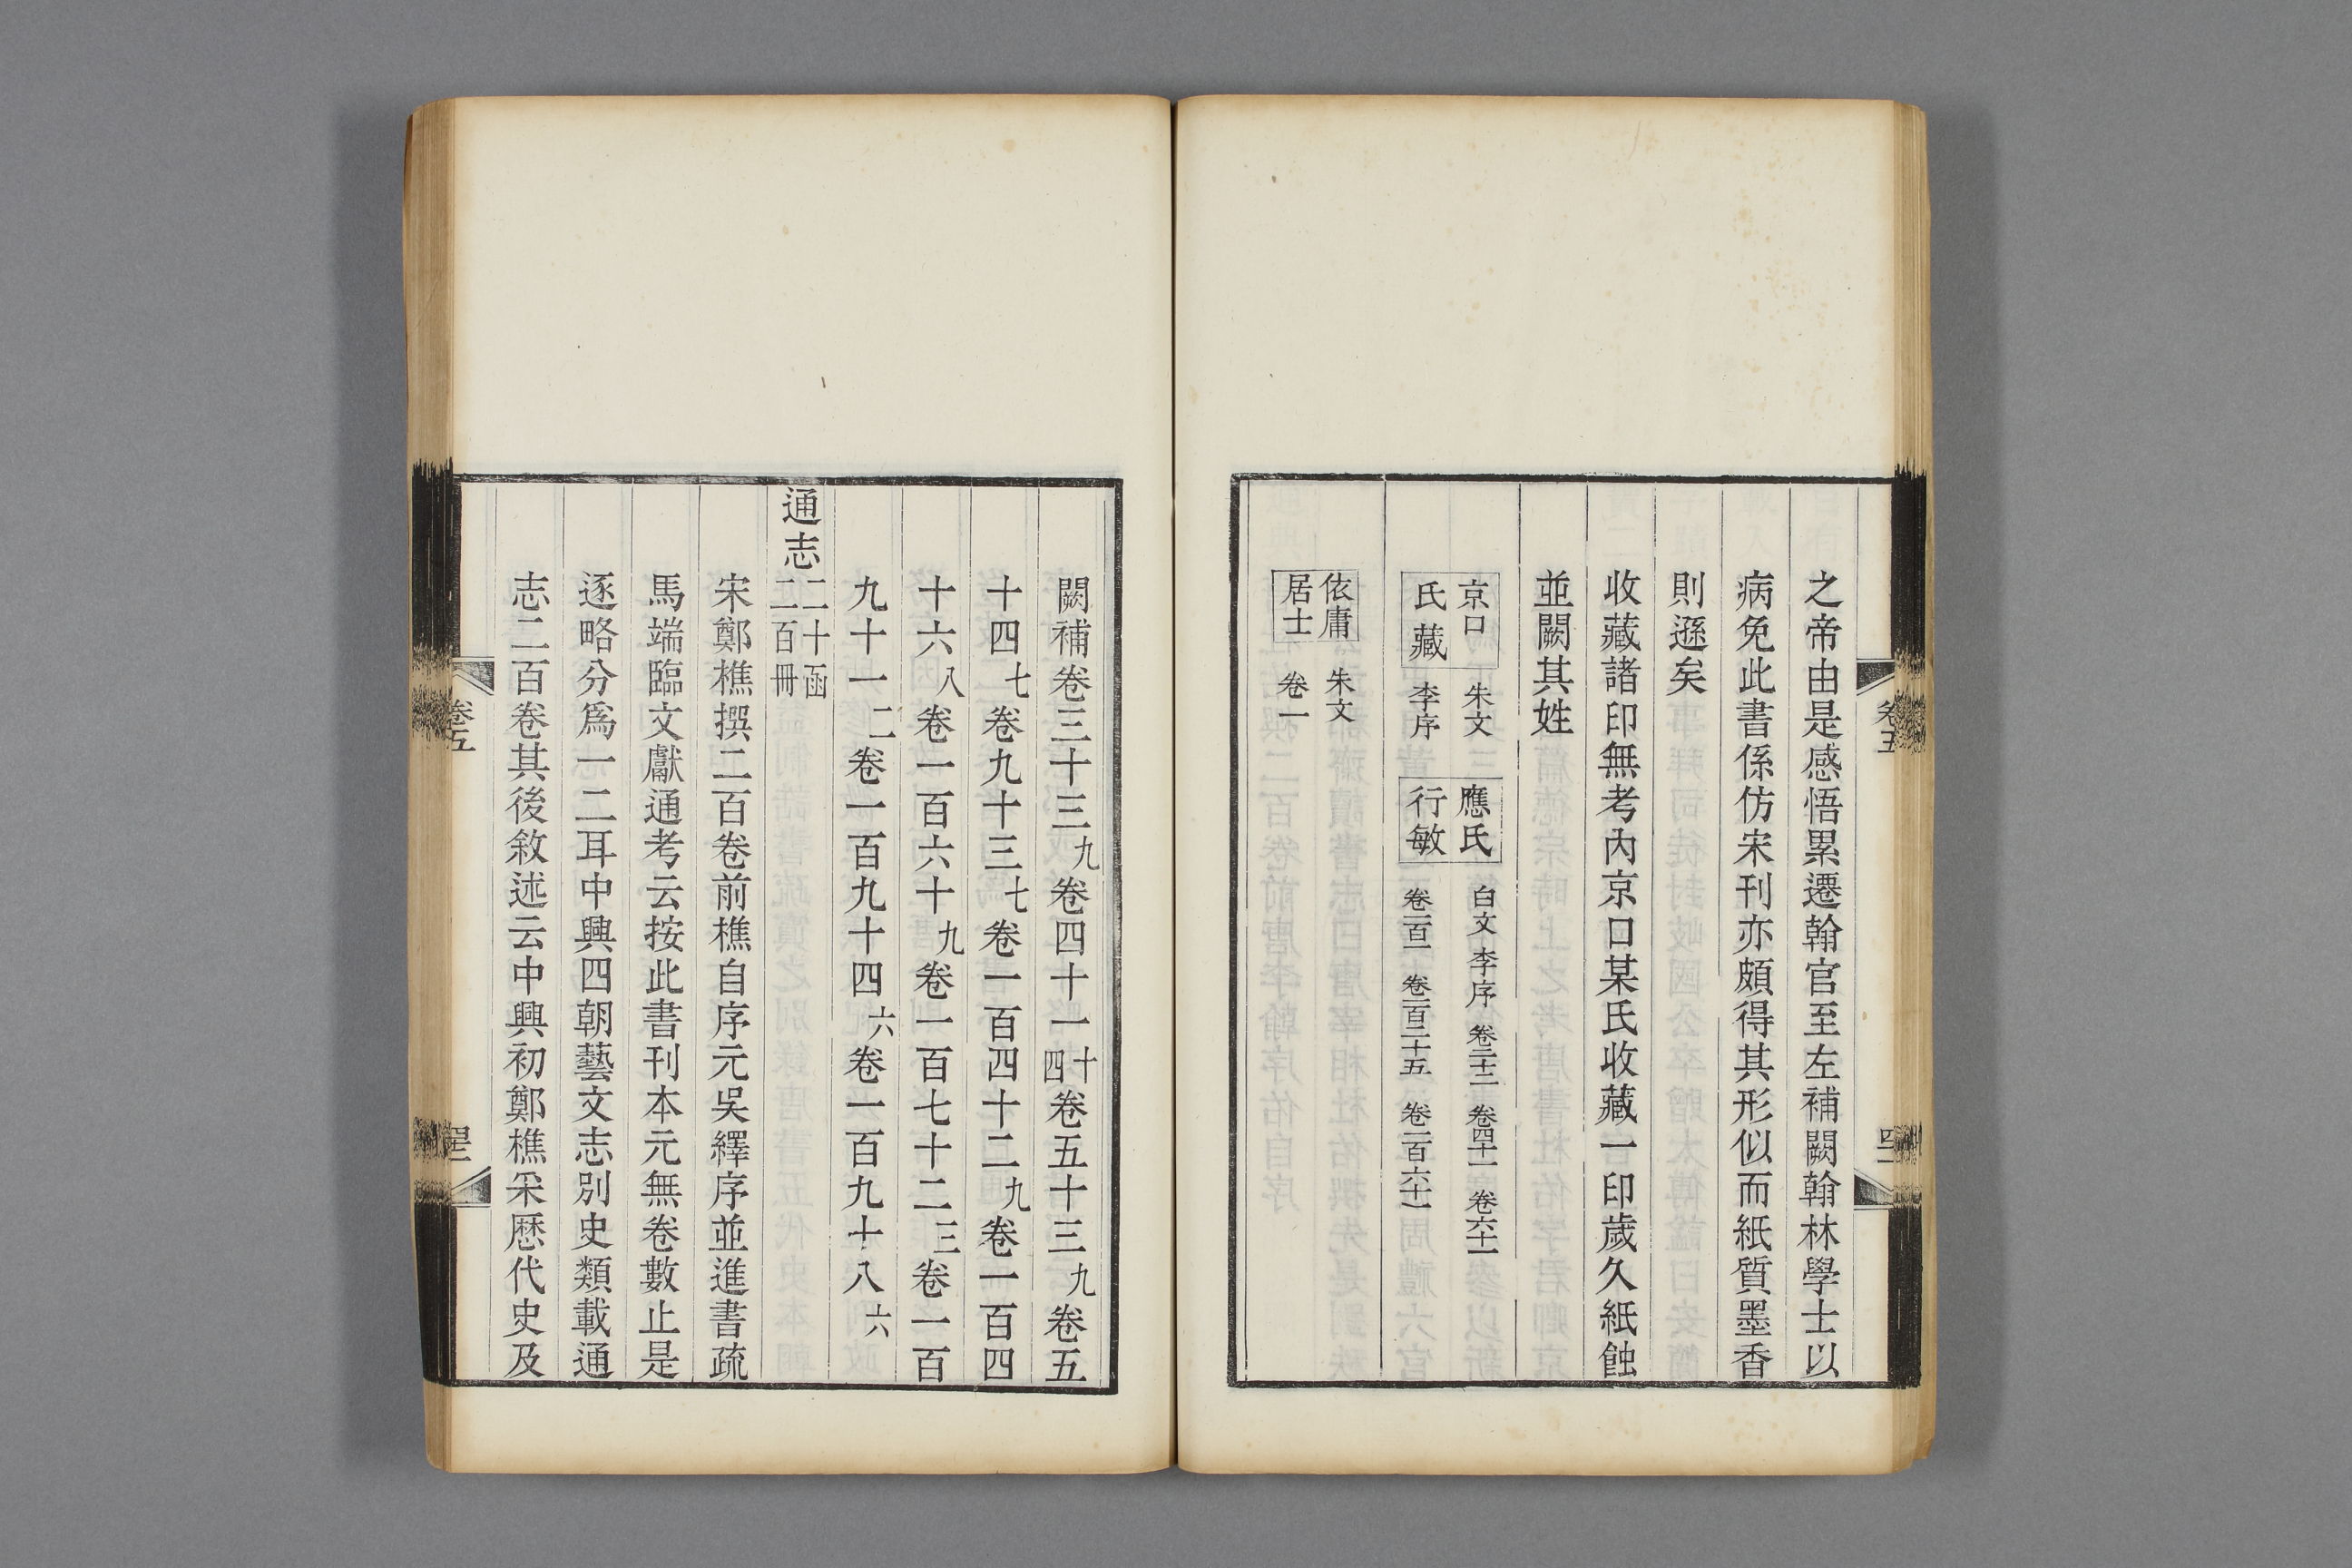 之帝由是感悟累遷翰官至左補闕翰林學士以
病免此書係仿宋刊亦頗得其形似而紙質墨香
則遜矣
收藏諸印無考內京口某氏收藏一印歲久紙蝕
並闕其姓
京口
氏藏
朱文
李序
應氏
行敏
白文 李序 卷三十二 卷四十一 卷六十一
卷一百一 卷一百二十五 卷一百六十一
依庸
居士
朱文
卷一
卷五
闕補卷三十三九卷四十一十四卷五十三九卷五
十四七卷九十三七卷一百四十二九卷一百四
十六八卷一百六十九卷一百七十二三卷一百
九十一二卷一百九十四六卷一百九十八六
通志二十函
二百冊
宋鄭樵撰二百卷前樵自序元吳繹序並進書疏
馬端臨文獻通考云按此書刊本元無卷數止是
逐略分爲一二耳中興四朝藝文志別史類載通
志二百卷其後敘述云中興初鄭樵采歷代史及
卷五